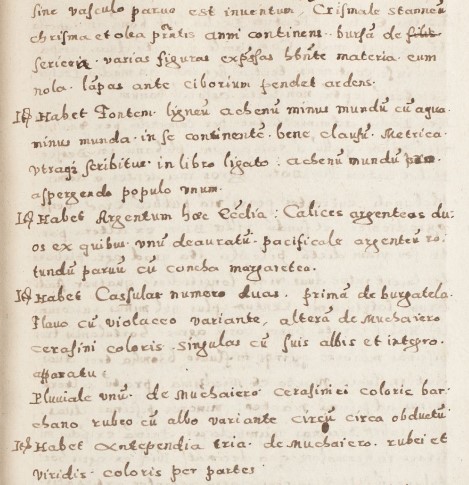 sine vasculo paruo est inventum, Crismale stanneū
chrisma et olea p̄ntis anni continens. bursā de
sericeis varias figuras exp̄ssas hn̄te materia cum
nola. lāpas ante ciborium pendet ardens.
Itē Habet Fontem ligneū achenū minus mundū cū aqua.
minus munda in se continentē. bene clausū. Metrica
utraqꝫ scribitur in libro ligato. achenū mundū pro
aspergendo populo unum.
Itē Habet Argentum hoc Ecc̄lia: Calices argenteos du-
os ex quibus unū deauratū. pacificale argenteū ro-
tundū paruū cū concha margaretea.
Itē Habet Cassulas numero duas. primā de burgatela.
Flauo cū violaceo variante, alterā de Muchaiero
cerasini coloris. singulas cū suis albis et integro.
apparatu:
Pluuiale unū. de Muchaiero cerasinei coloris bar-
chano rubeo cū albo variante circū circa obductū
Itē Habet Antependia tria. de Muchaiero. rubei et
viridis coloris per partes.